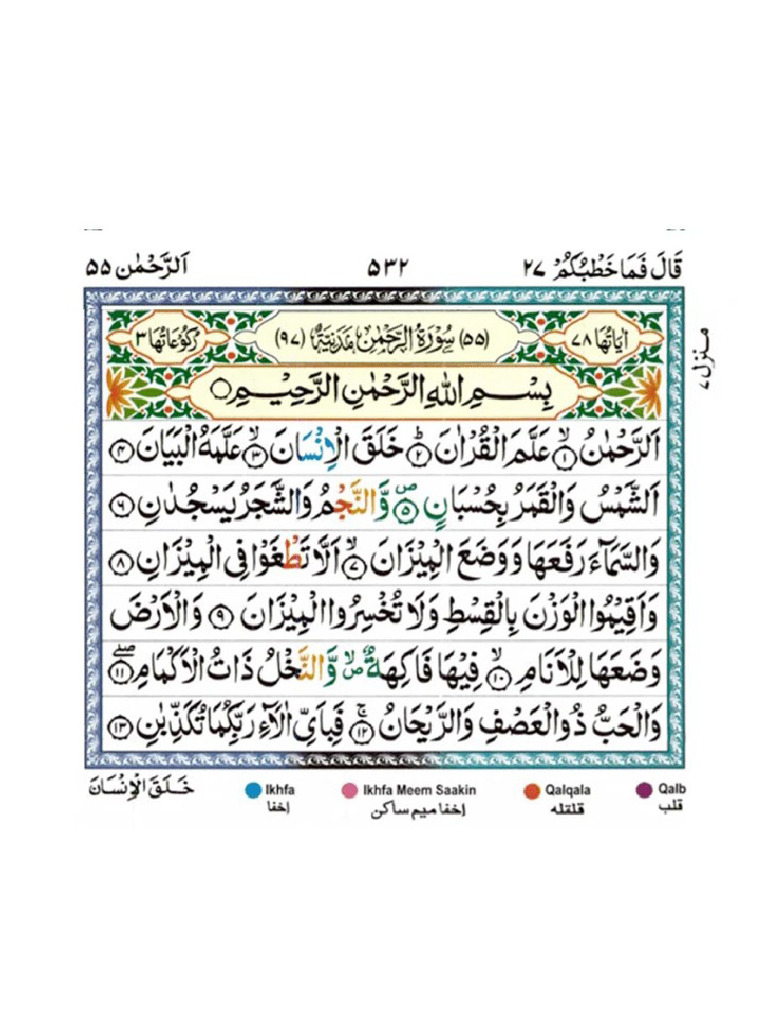 قَالَ فَمَا خَطْبُكُمْ ٢٧ ٥٣٢ اَلرَّحْمٰن ٥٥
اٰيَاتُهَا ٧٨ (٥٥) سُوْرَةُ الرَّحْمٰنِ مَدَنِيَّةٌ (٩٧) رُكُوْعَاتُهَا ٣
منزل ٧
بِسْمِ اللّٰهِ الرَّحْمٰنِ الرَّحِيْمِ ○
اَلرَّحْمٰنُ ۙ﴿١﴾ عَلَّمَ الْقُرْاٰنَ ؕ﴿٢﴾ خَلَقَ الْاِنْسَانَ ۙ﴿٣﴾ عَلَّمَهُ الْبَيَانَ ﴿٤﴾
اَلشَّمْسُ وَالْقَمَرُ بِحُسْبَانٍ ۪﴿٥﴾ وَّالنَّجْمُ وَالشَّجَرُ يَسْجُدٰنِ ﴿٦﴾
وَالسَّمَآءَ رَفَعَهَا وَوَضَعَ الْمِيْزَانَ ۙ﴿٧﴾ اَلَّا تَطْغَوْا فِى الْمِيْزَانِ ﴿٨﴾
وَاَقِيْمُوا الْوَزْنَ بِالْقِسْطِ وَلَا تُخْسِرُوا الْمِيْزَانَ ﴿٩﴾ وَالْاَرْضَ
وَضَعَهَا لِلْاَنَامِ ۙ﴿١٠﴾ فِيْهَا فَاكِهَةٌ ۪ۙ وَّالنَّخْلُ ذَاتُ الْاَكْمَامِ ﴿١١﴾
وَالْحَبُّ ذُو الْعَصْفِ وَالرَّيْحَانُ ۚ﴿١٢﴾ فَبِاَىِّ اٰلَآءِ رَبِّكُمَا تُكَذِّبٰنِ ﴿١٣﴾
خَلَقَ الْاِنْسَانَ Ikhfa Ikhfa Meem Saakin Qalqala Qalb
إخفا إخفا ميم ساكن قلقله قلب